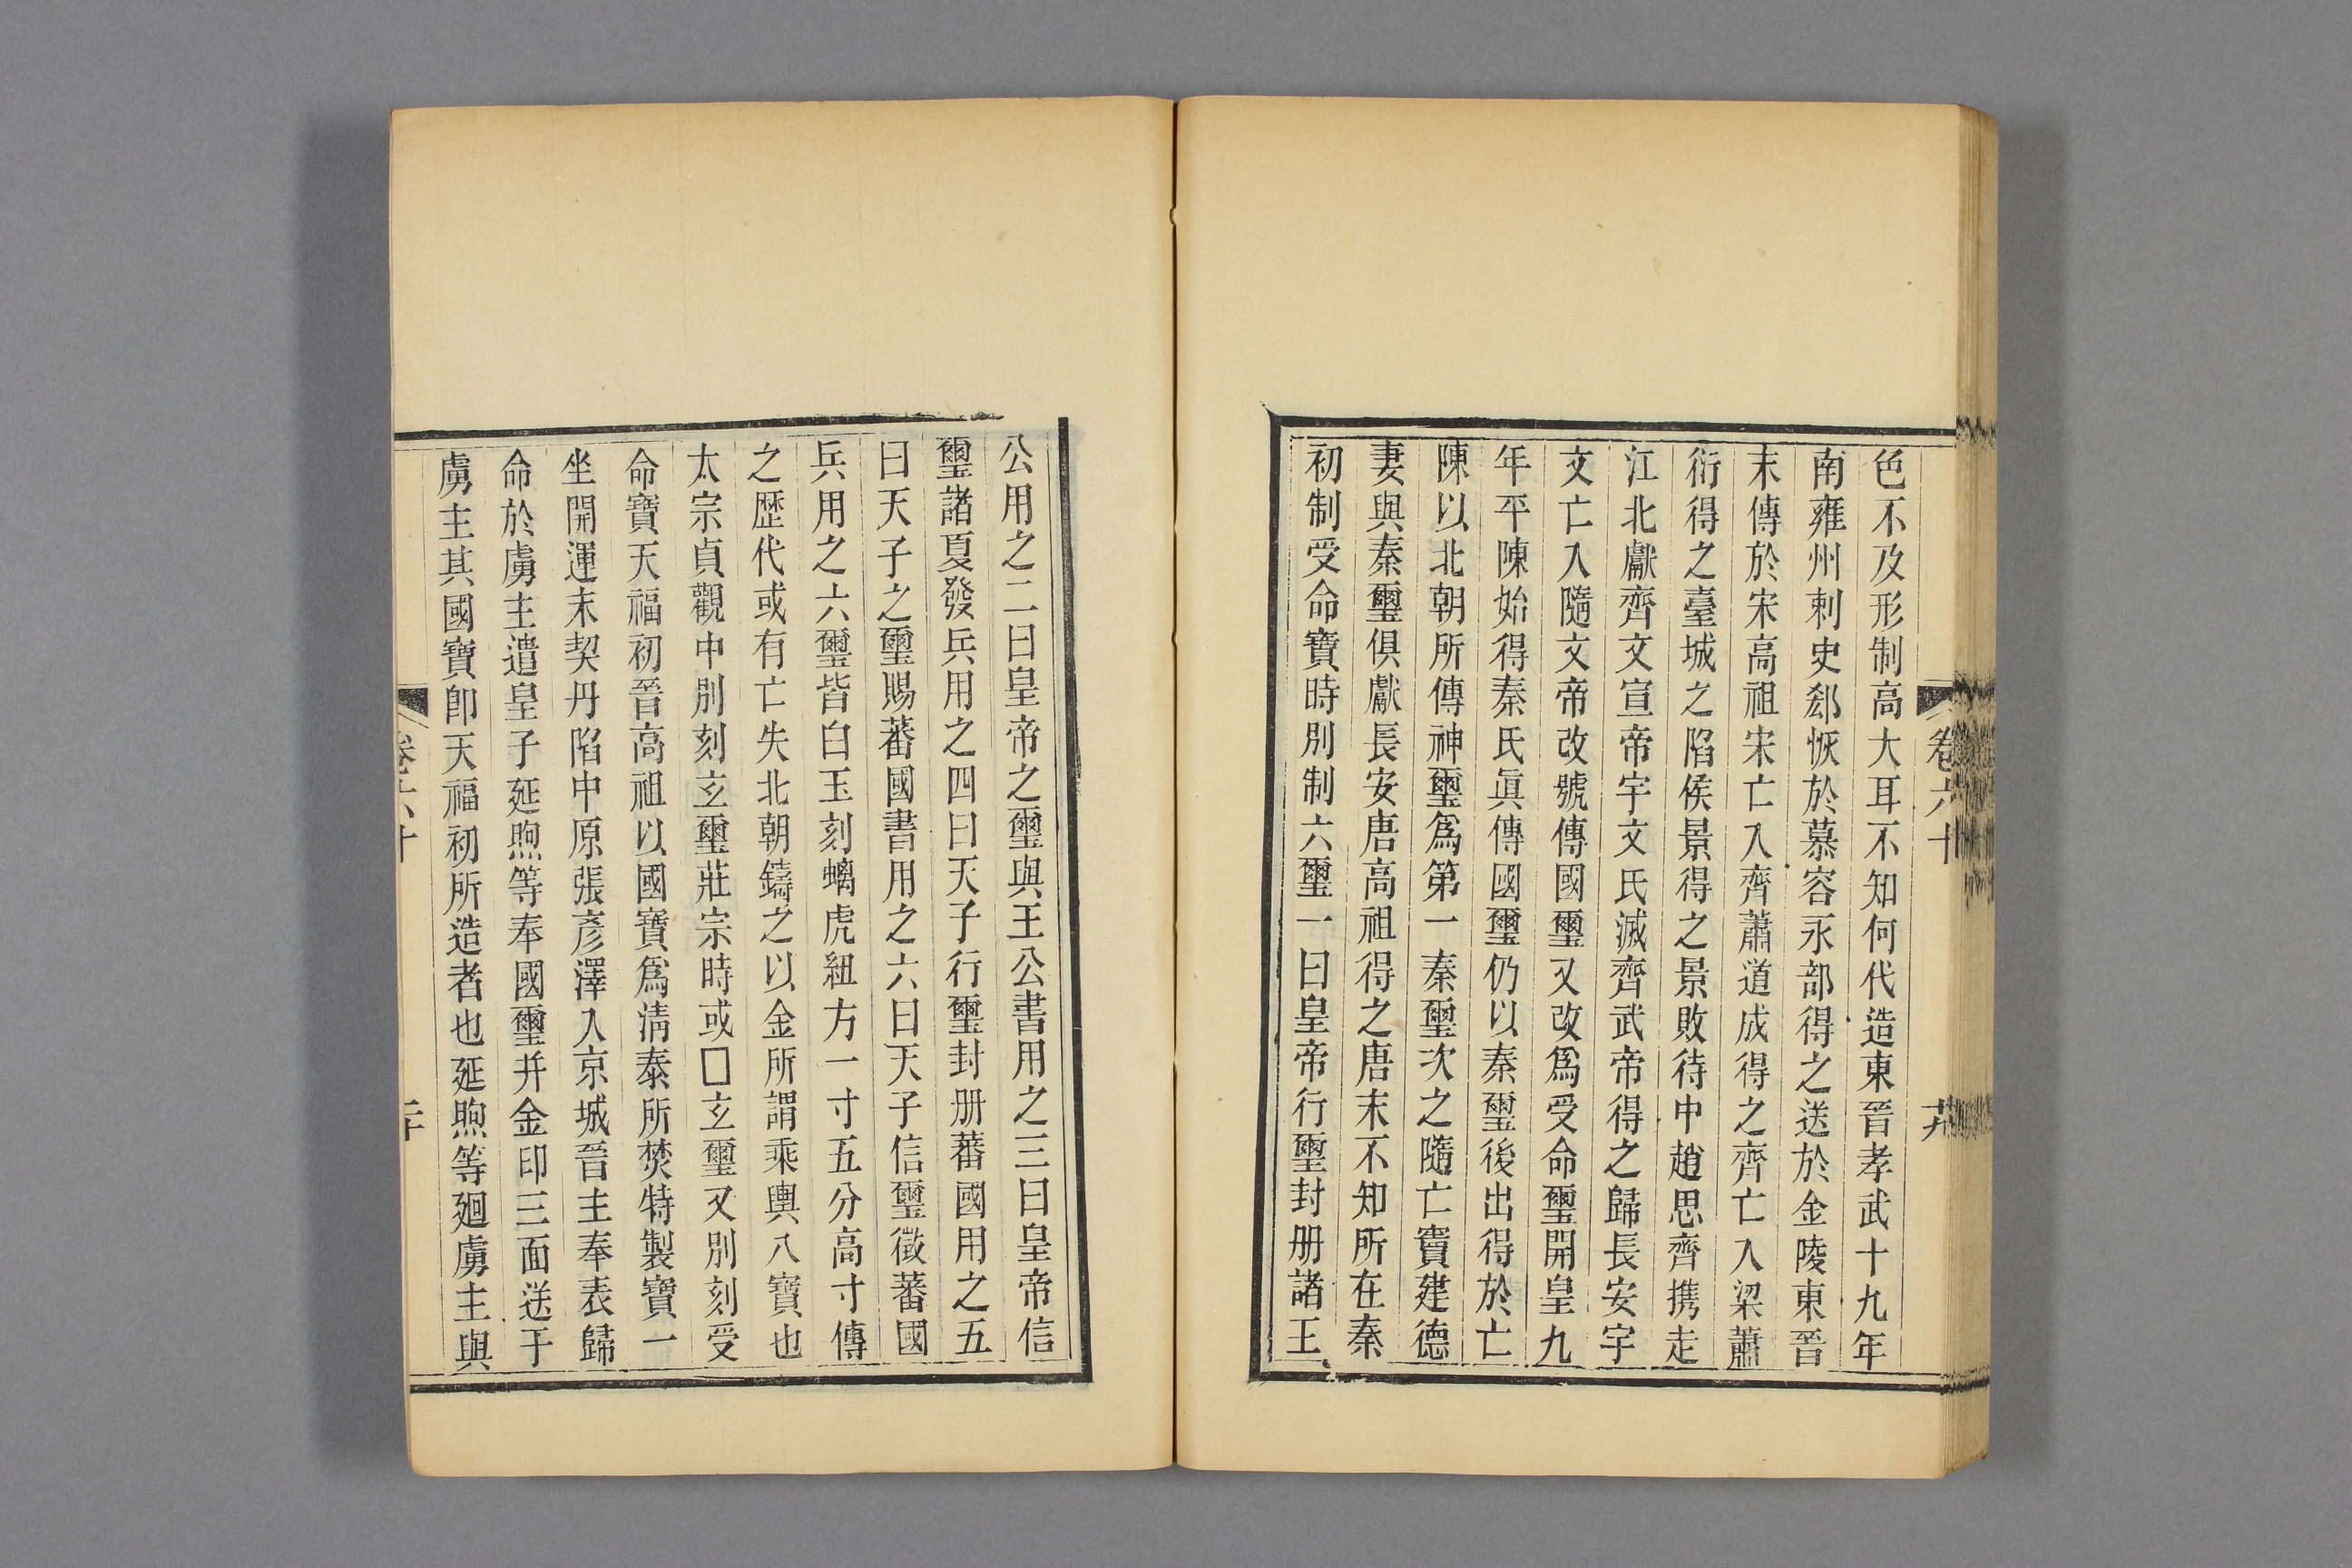 卷六十
色不及形制高大耳不知何代造東晉孝武十九年
南雍州刺史郄恢於慕容永部得之送於金陵東晉
末傳於宋高祖宋亡入齊蕭道成得之齊亡入梁蕭
衍得之臺城之陷侯景得之景敗待中趙思齊攜走
江北獻齊文宣帝宇文氏滅齊武帝得之歸長安宇
文亡入隨文帝改號傳國璽又改爲受命璽開皇九
年平陳始得秦氏眞傳國璽仍以秦璽後出得於亡
陳以北朝所傳神璽爲第一秦璽次之隨亡竇建德
妻與秦璽俱獻長安唐高祖得之唐末不知所在秦
初制受命寶時別制六璽一曰皇帝行璽封册諸王
公用之二曰皇帝之璽與王公書用之三曰皇帝信
璽諸夏發兵用之四曰天子行璽封册蕃國用之五
曰天子之璽賜蕃國書用之六曰天子信璽徵蕃國
兵用之六璽皆白玉刻螭虎紐方一寸五分高寸傳
之歷代或有亡失北朝鑄之以金所謂乘輿八寶也
太宗貞觀中別刻玄璽莊宗時或□玄璽又別刻受
命寶天福初晉高祖以國寶爲淸泰所焚特製寶一
坐開運末契丹陷中原張彥澤入京城晉主奉表歸
命於虜主遣皇子延煦等奉國璽并金印三面送于
虜主其國寶卽天福初所造者也延煦等廻虜主與